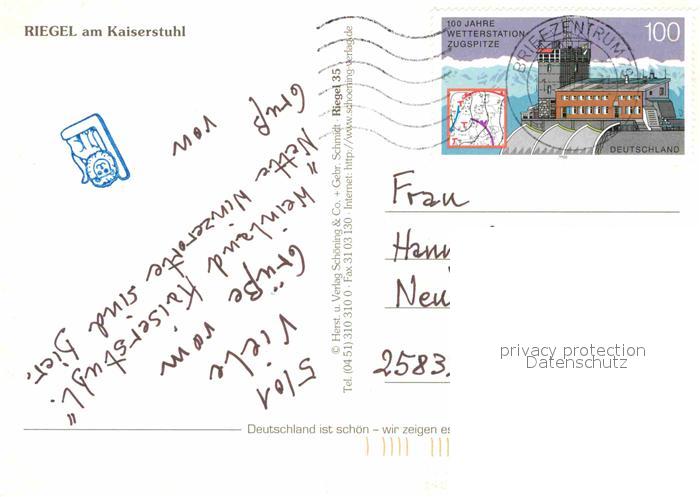 RIEGEL am Kaiserstuhl
100 JAHRE
WETTERSTATION
ZUGSPITZE
100
DEUTSCHLAND
BRIEFZENTRUM
5/01
Viele
Grüße vom
Weinland Kaiserstuhl.
"Nette Winzerorte sind hier.
Gruß
von
© Herst. u. Verlag Schöning & Co. + Gebr. Schmidt · Riegel 35
Tel. (04 51) 310 310 0 · Fax 31 03 130 · Internet: http://www.schoening-verlag.de
Frau
Hann
Neu
2583.
privacy protection
Datenschutz
Deutschland ist schön – wir zeigen es